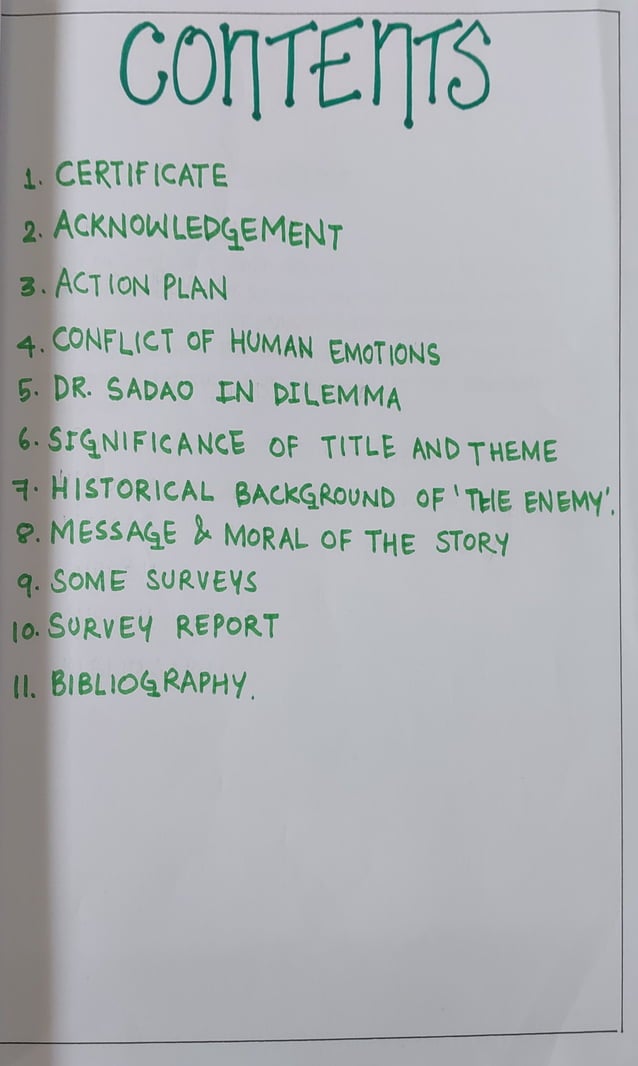 CONTENTS
1. CERTIFICATE
2. ACKNOWLEDGEMENT
3. ACTION PLAN
4. CONFLICT OF HUMAN EMOTIONS
5. DR. SADAO IN DILEMMA
6. SIGNIFICANCE OF TITLE AND THEME
7. HISTORICAL BACKGROUND OF 'THE ENEMY'.
8. MESSAGE & MORAL OF THE STORY
9. SOME SURVEYS
10. SURVEY REPORT
11. BIBLIOGRAPHY.